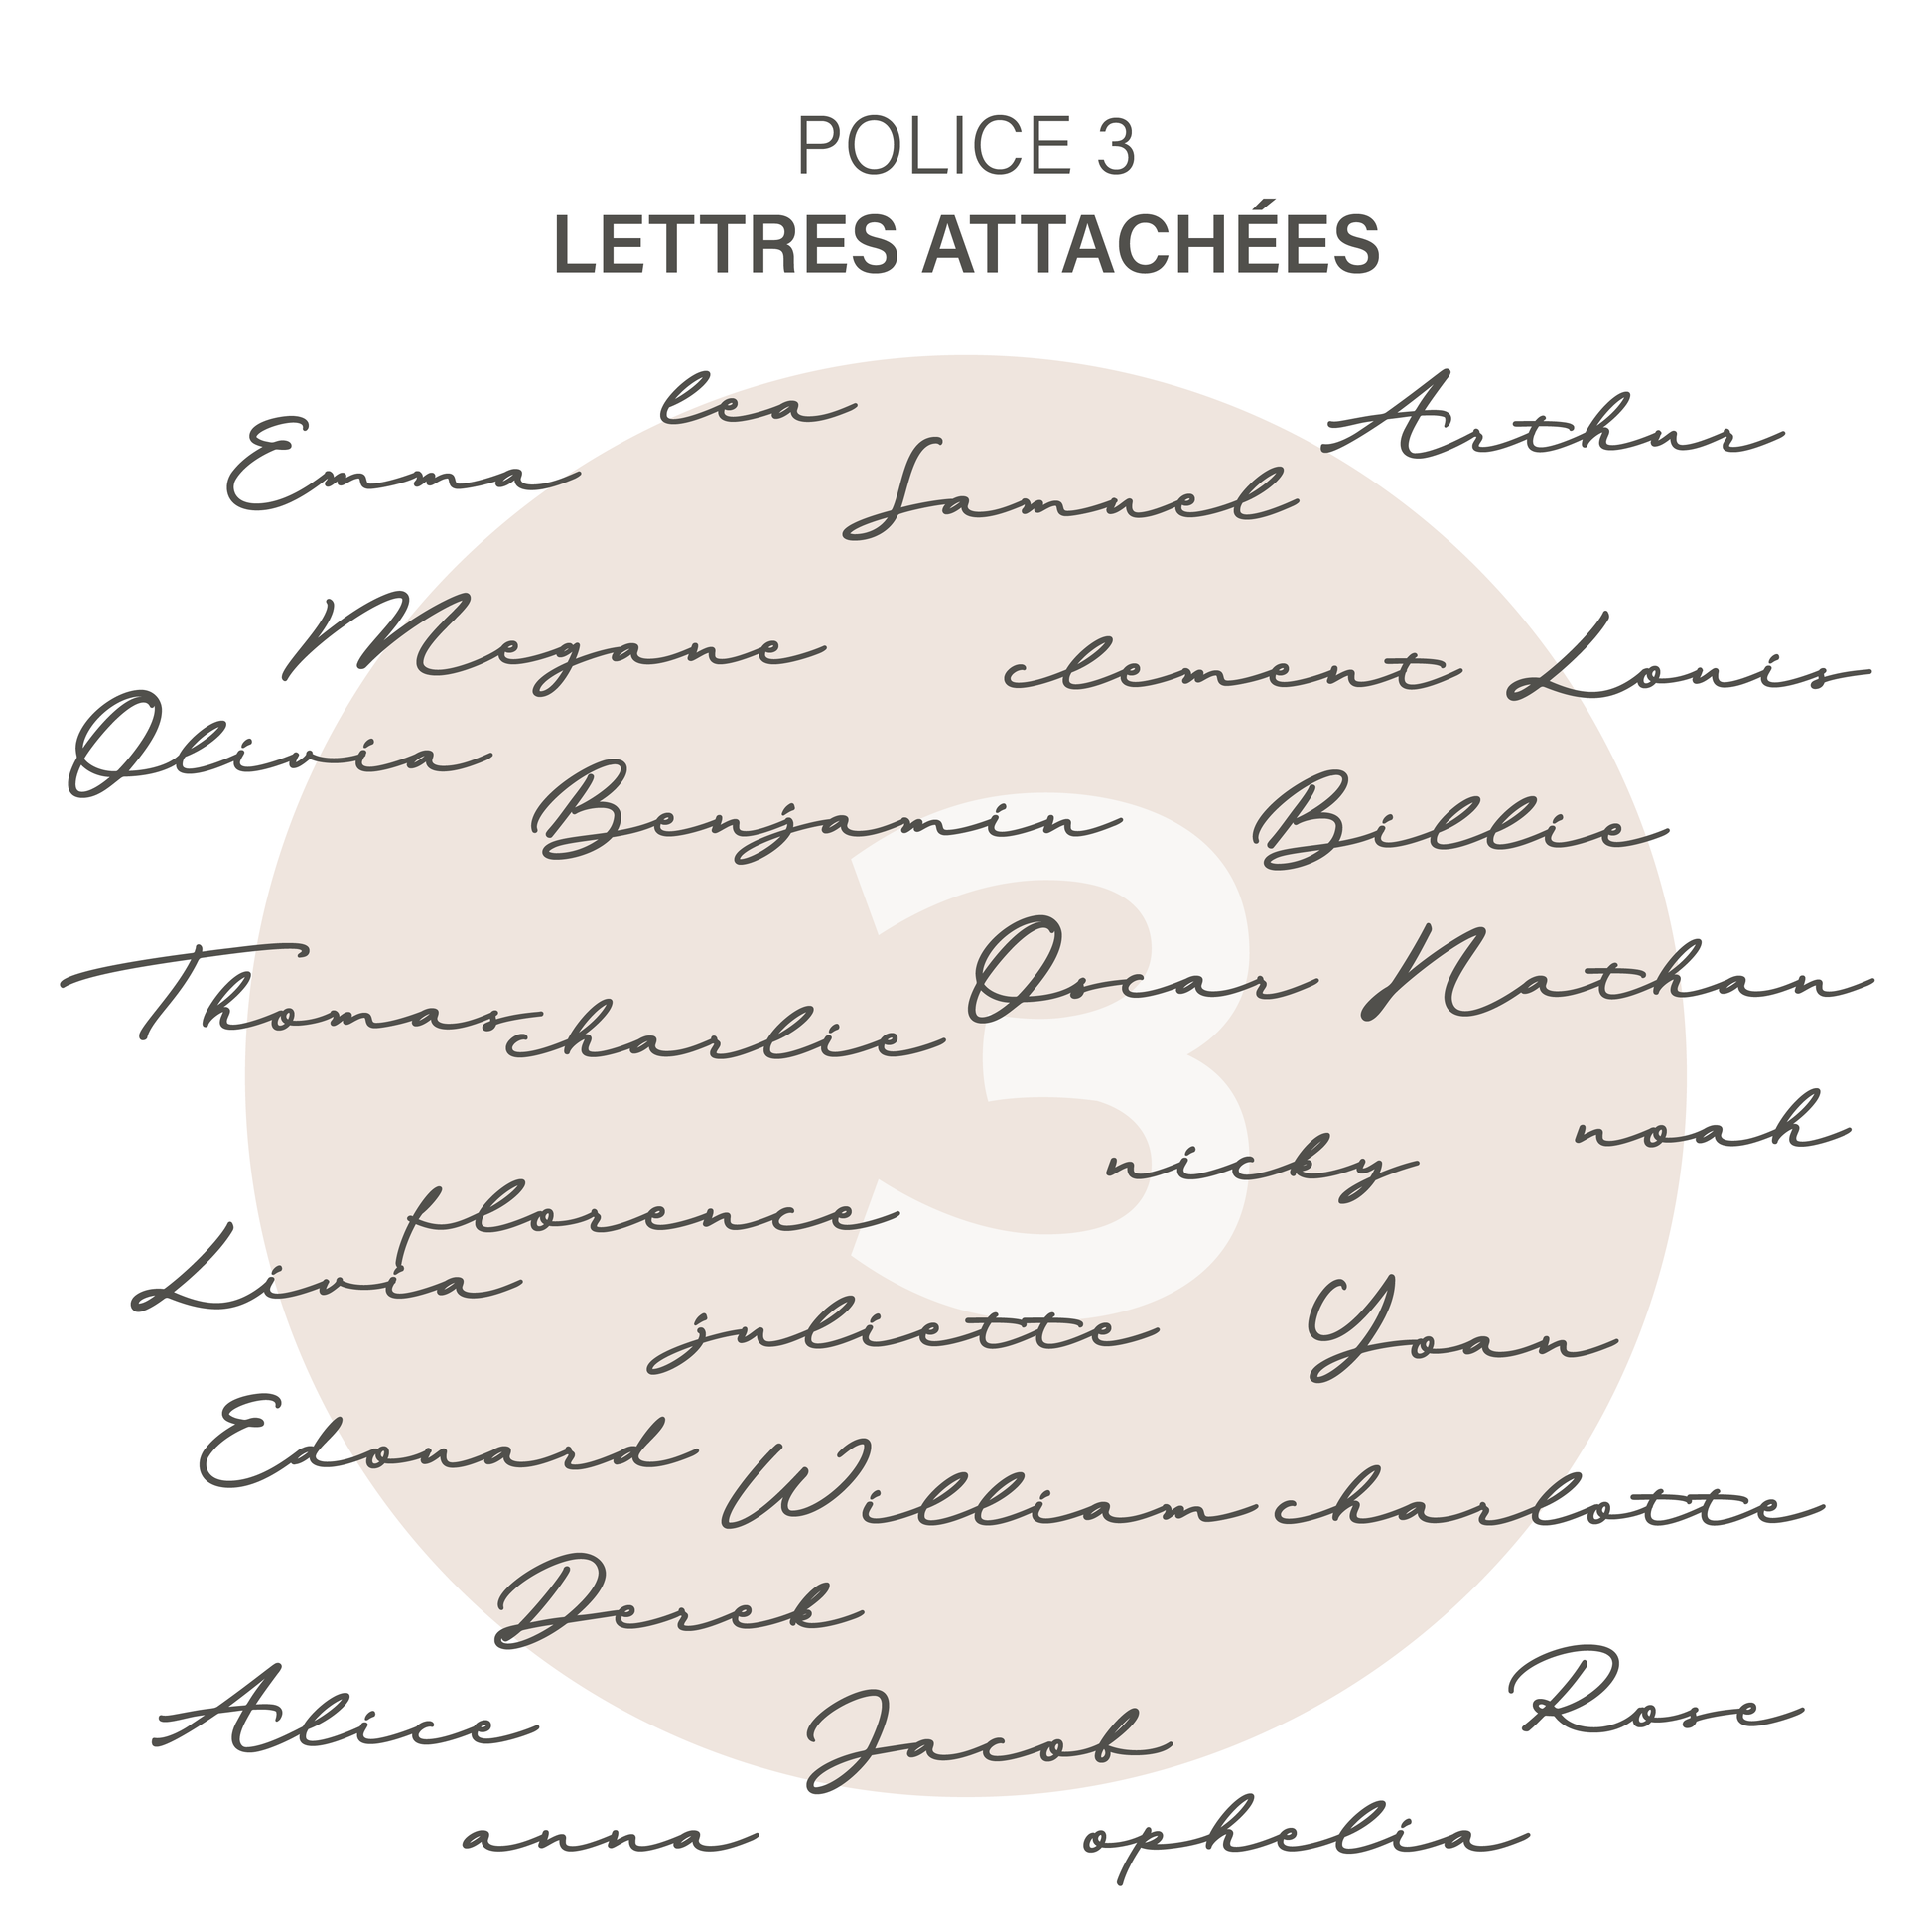 POLICE 3
LETTRES ATTACHÉES
lea
Arthur
Emma
Samuel
Megane
clement
Louis
Olivia
Benjamin
Billie
3
Thomas
Oscar
Nathan
charlie
noah
nicky
florence
Livia
juliette
Yoan
Edouard
William
charlotte
Derek
Alice
Jacob
Rose
anna
ophelia